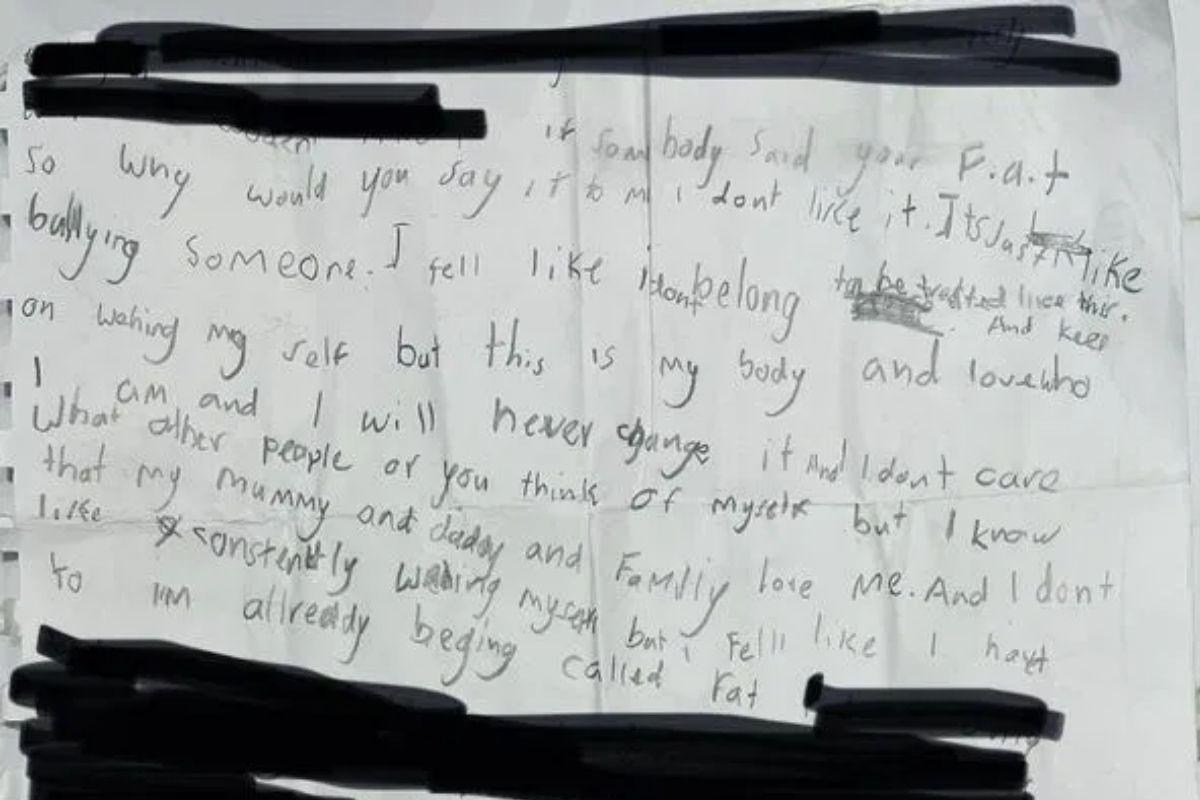 if sombody said your F.a.t
so why would you say it to m i dont like it. Its just like
bullying someone. I fell like i dont belong to be treated like this. And keep
on wehing my self but this is my body and love who
I am and I will never change it And I dont care
What other people or you think of myself but I know
that my mummy and daddy and Family love me. And I dont
like constently wehing myself but i fell like I havt
to im allready beging called Fat